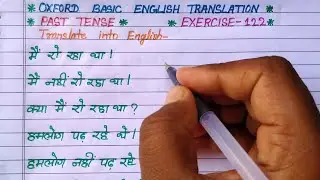 * OXFORD BASIC ENGLISH TRANSLATION *
PAST TENSE * * EXERCISE-122
Translate into English-
मैं रो रहा था।
मैं नहीं रो रहा था।
क्या मैं रो रहा था?
हमलोग पढ़ रहे थे।
हमलोग नहीं पढ़ रहे